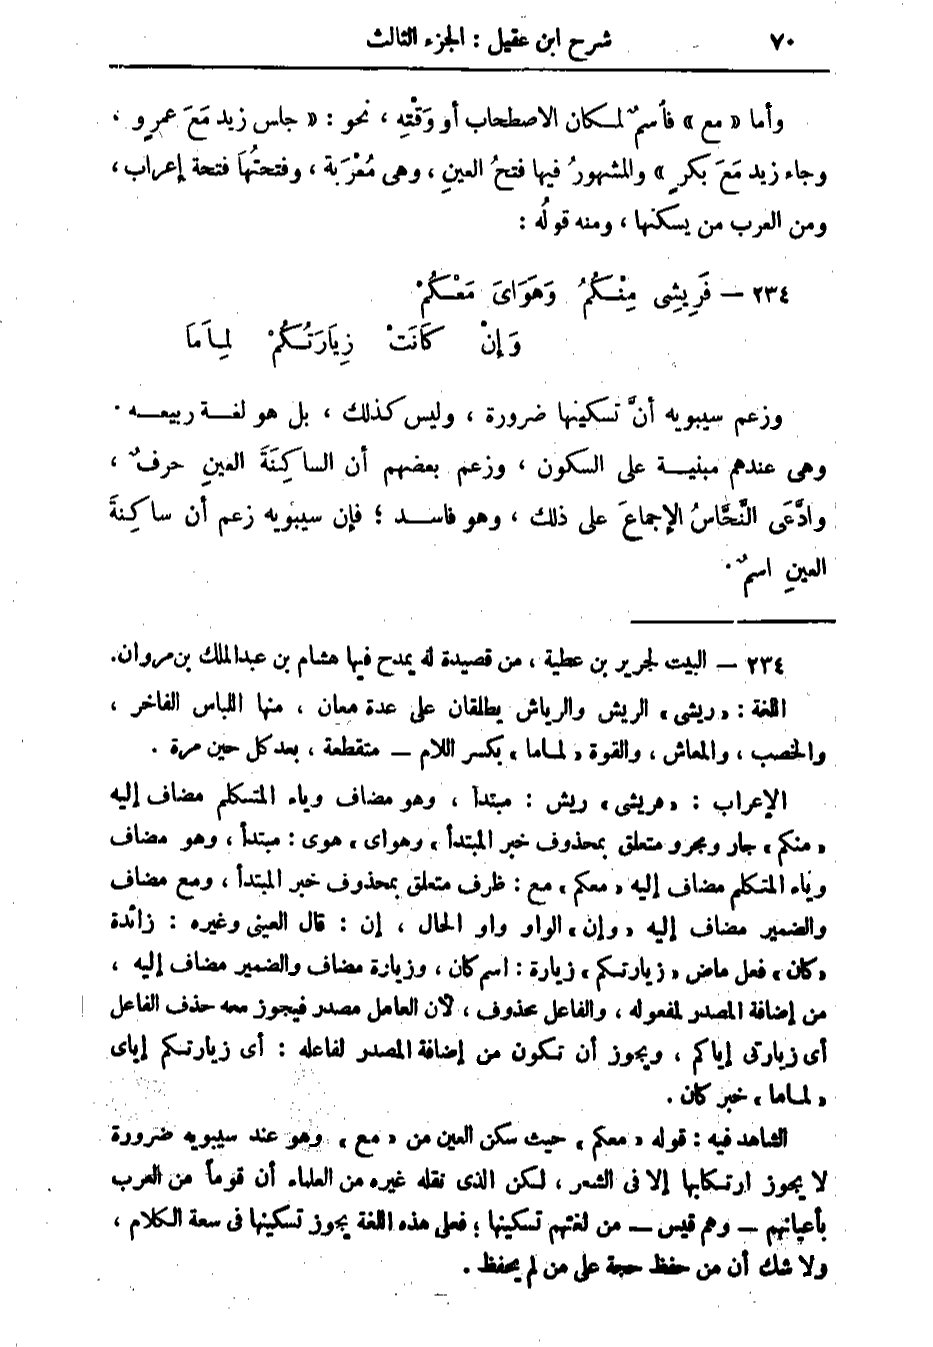 ٧٠ شرح ابن عقيل : الجزء الثالث
وأما « مع » فاسمٌ لمكان الاصطحاب أو وَقْتِهِ ، نحو : « جلس زيد مَعَ عمرٍو ،
وجاء زيد مَعَ بكرٍ » والمشهورُ فيها فتحُ العينِ ، وهى مُعْرَبة ، وفتحتُهَا فتحة إعراب ،
ومن العرب من يسكنها ، ومنه قولُه :
٢٣٤ – فَرِيشِى مِنْكُمُ وَهَوَاىَ مَعْكُمْ
وَإِنْ كَانَتْ زِيَارَتُكُمْ لِمَامَا
وزعم سيبويه أنَّ تسكينها ضرورة ، وليس كذلك ، بل هو لغة ربيعه .
وهى عندهم مبنية على السكون ، وزعم بعضهم أن الساكِنَةَ العينِ حرفٌ ،
وادَّعَى النَّحَّاسُ الإجماعَ على ذلك ، وهو فاسد ؛ فإن سيبويه زعم أن ساكِنةَ
العينِ اسمٌ .
٢٣٤ – البيت لجرير بن عطية ، من قصيدة له يمدح فيها هشام بن عبدالملك بن مروان.
اللغة : « ريشى » الريش والرياش يطلقان على عدة معان ، منها اللباس الفاخر ،
والخصب ، والمعاش ، والقوة « لماما » بكسر اللام – متقطعة ، بعد كل حين مرة .
الإعراب : « فريشى » ريش : مبتدأ ، وهو مضاف وياء المتكلم مضاف إليه
« منكم » جار ومجرو متعلق بمحذوف خبر المبتدأ « وهواى » هوى : مبتدأ ، وهو مضاف
وياء المتكلم مضاف إليه « معكم » مع : ظرف متعلق بمحذوف خبر المبتدأ ، ومع مضاف
والضمير مضاف إليه « وإن » الواو واو الحال ، إن : قال العينى وغيره : زائدة
« كان » فعل ماض « زيارتكم » زيارة : اسم كان ، وزيارة مضاف والضمير مضاف إليه ،
من إضافة المصدر لمفعوله ، والفاعل محذوف ، لأن العامل مصدر فيجوز معه حذف الفاعل
أى زيارتى إياكم ، ويجوز أن تكون من إضافة المصدر لفاعله : أى زيارتكم إياى
« لماما » خبر كان .
الشاهد فيه : قوله « معكم » حيث سكن العين من « مع » وهو عند سيبويه ضرورة
لا يجوز ارتكابها إلا فى الشعر ، لكن الذى نقله غيره من العلماء أن قوماً من العرب
بأعيانهم – وهم قيس – من لغتهم تسكينها ؛ فعلى هذه اللغة يجوز تسكينها فى سعة الكلام ،
ولا شك أن من حفظ حجة على من لم يحفظ .